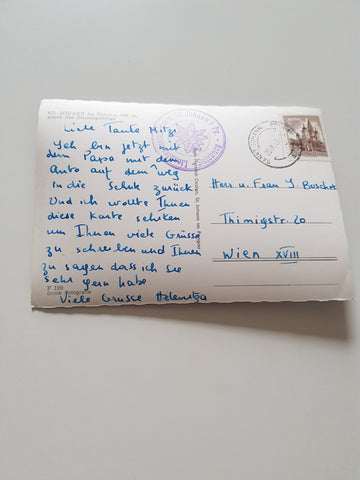 ST. JOHANN im Pongau,
Liebe Tante Mitzi
Ich bin jetzt mit
dem Papa mit dem
Auto auf dem weg
in die Schule zurück.
Und ich wollte Ihnen
diese Karte schiken
um Ihnen viele Grüsse
zu schreiben und Ihnen
zu sagen dass ich Sie
sehr gern habe
Viele Grüsse
Herr u. Frau J. Buschek
Thimigstr. 20
Wien XVIII